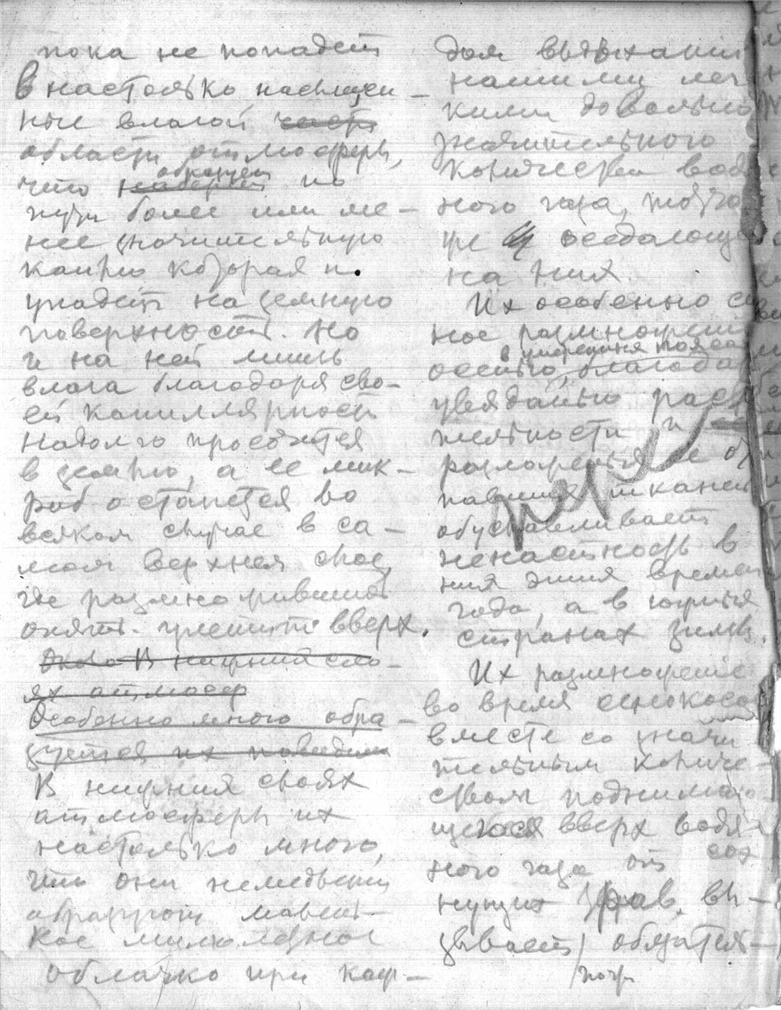 пока не попадет
в настолько насыщен-
ные влагой части
области атмосферы,
что наберет образует по
пути более или ме-
нее значительную
каплю которая и
упадет на земную
поверхность. Но
и на ней лишь
влага благодаря сво-
ей капиллярности
надолго просочится
в землю, а ее мик-
роб останется во
всяком случае в са-
мом верхнем слое,
где размножившись
опять улетит вверх.
В нижний сло-
ях атмосфер
Особенно много обра-
зуется их
В нижних слоях
атмосферы их
настолько много,
что они немедленно
образуют малень-
кое
облачко при каж-
дом выдыхании
нашими лег
кими довольно
значительного
количества водя
ного газа, тотчас
же оседающего
на них.
Их особенно силь
ное размножение
осенью в умеренных поясах, благода
увяданью расти
тельности и
разложенья ее от
павших тканей
обуславливает
ненастность в
них этих времен
года, а в южных
странах зимы.
Их размножение
во время сенокоса
вместе со значи
тельным количе-
ством поднимаю-
щегося вверх водя-
ного газа от сох
нущих трав, вы-
зывает обязател-